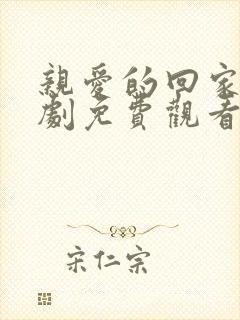 親愛的回家
劇免費觀看
宋仁宗